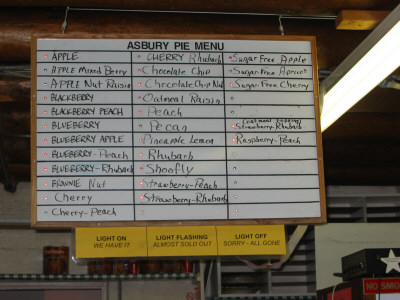 ASBURY PIE MENU
APPLE
APPLE Mixed Berry
APPLE Nut Raisin
BLACKBERRY
BLACKBERRY PEACH
BLUEBERRY
BLUEBERRY APPLE
BLUEBERRY-Peach
BLUEBERRY-Rhubarb
BROWNIE Nut
Cherry
Cherry-Peach
CHERRY Rhubarb
Chocolate Chip
Chocolate Chip Nut
Oatmeal Raisin
Peach
Pecan
Pineapple Lemon
Rhubarb
Shoofly
Strawberry-Peach
Strawberry-Rhubarb
Sugar Free Apple
Sugar Free Apricot
Sugar Free Cherry
Strawberry-Rhubarb
Raspberry-Peach
LIGHT ON
WE HAVE IT
LIGHT FLASHING
ALMOST SOLD OUT
LIGHT OFF
SORRY - ALL GONE
NO SMOK